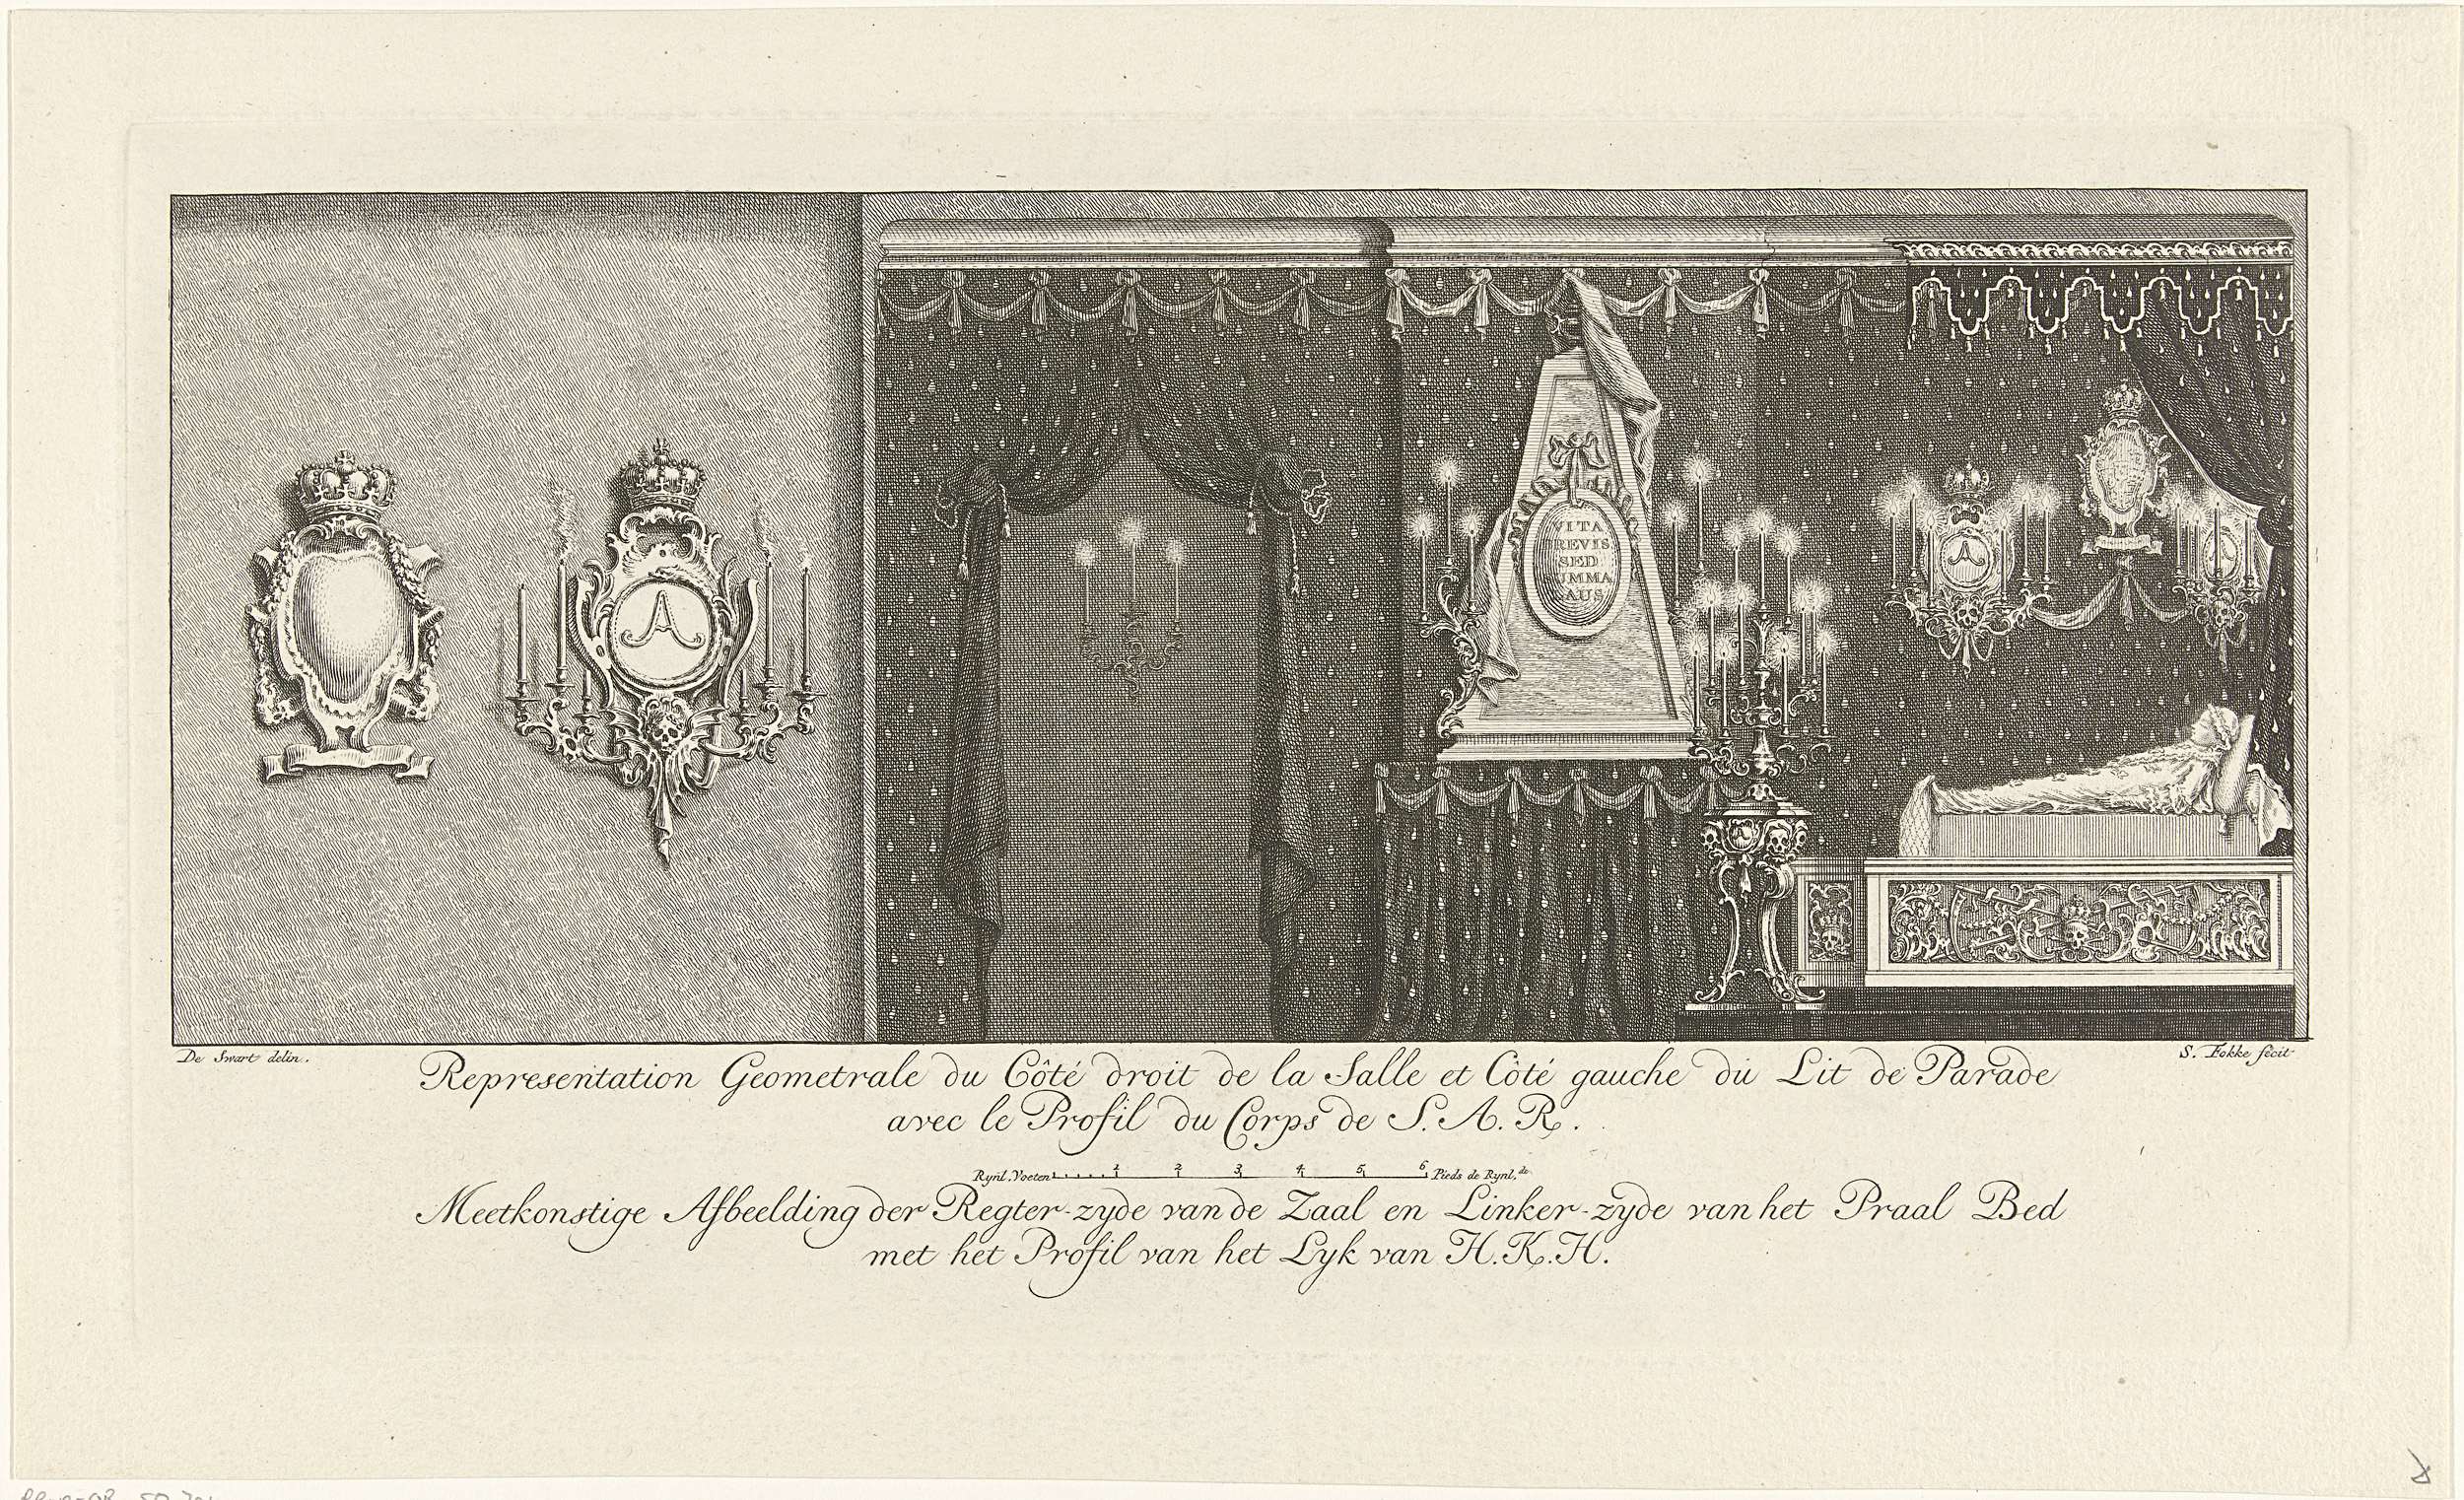 A
VITA
BREVIS
SED
SUMMA
LAUS
A
A
De Swart delin.
S. Fokke fecit
Representation Geometrale du Côté droit de la Salle et Côté gauche du Lit de Parade
avec le Profil du Corps de S. A. R.
Rynl. Voeten 1 2 3 4 5 6 Pieds de Rynl.de
Meetkonstige Afbeelding der Regter-zyde van de Zaal en Linker-zyde van het Praal Bed
met het Profil van het Lyk van H.K.H.